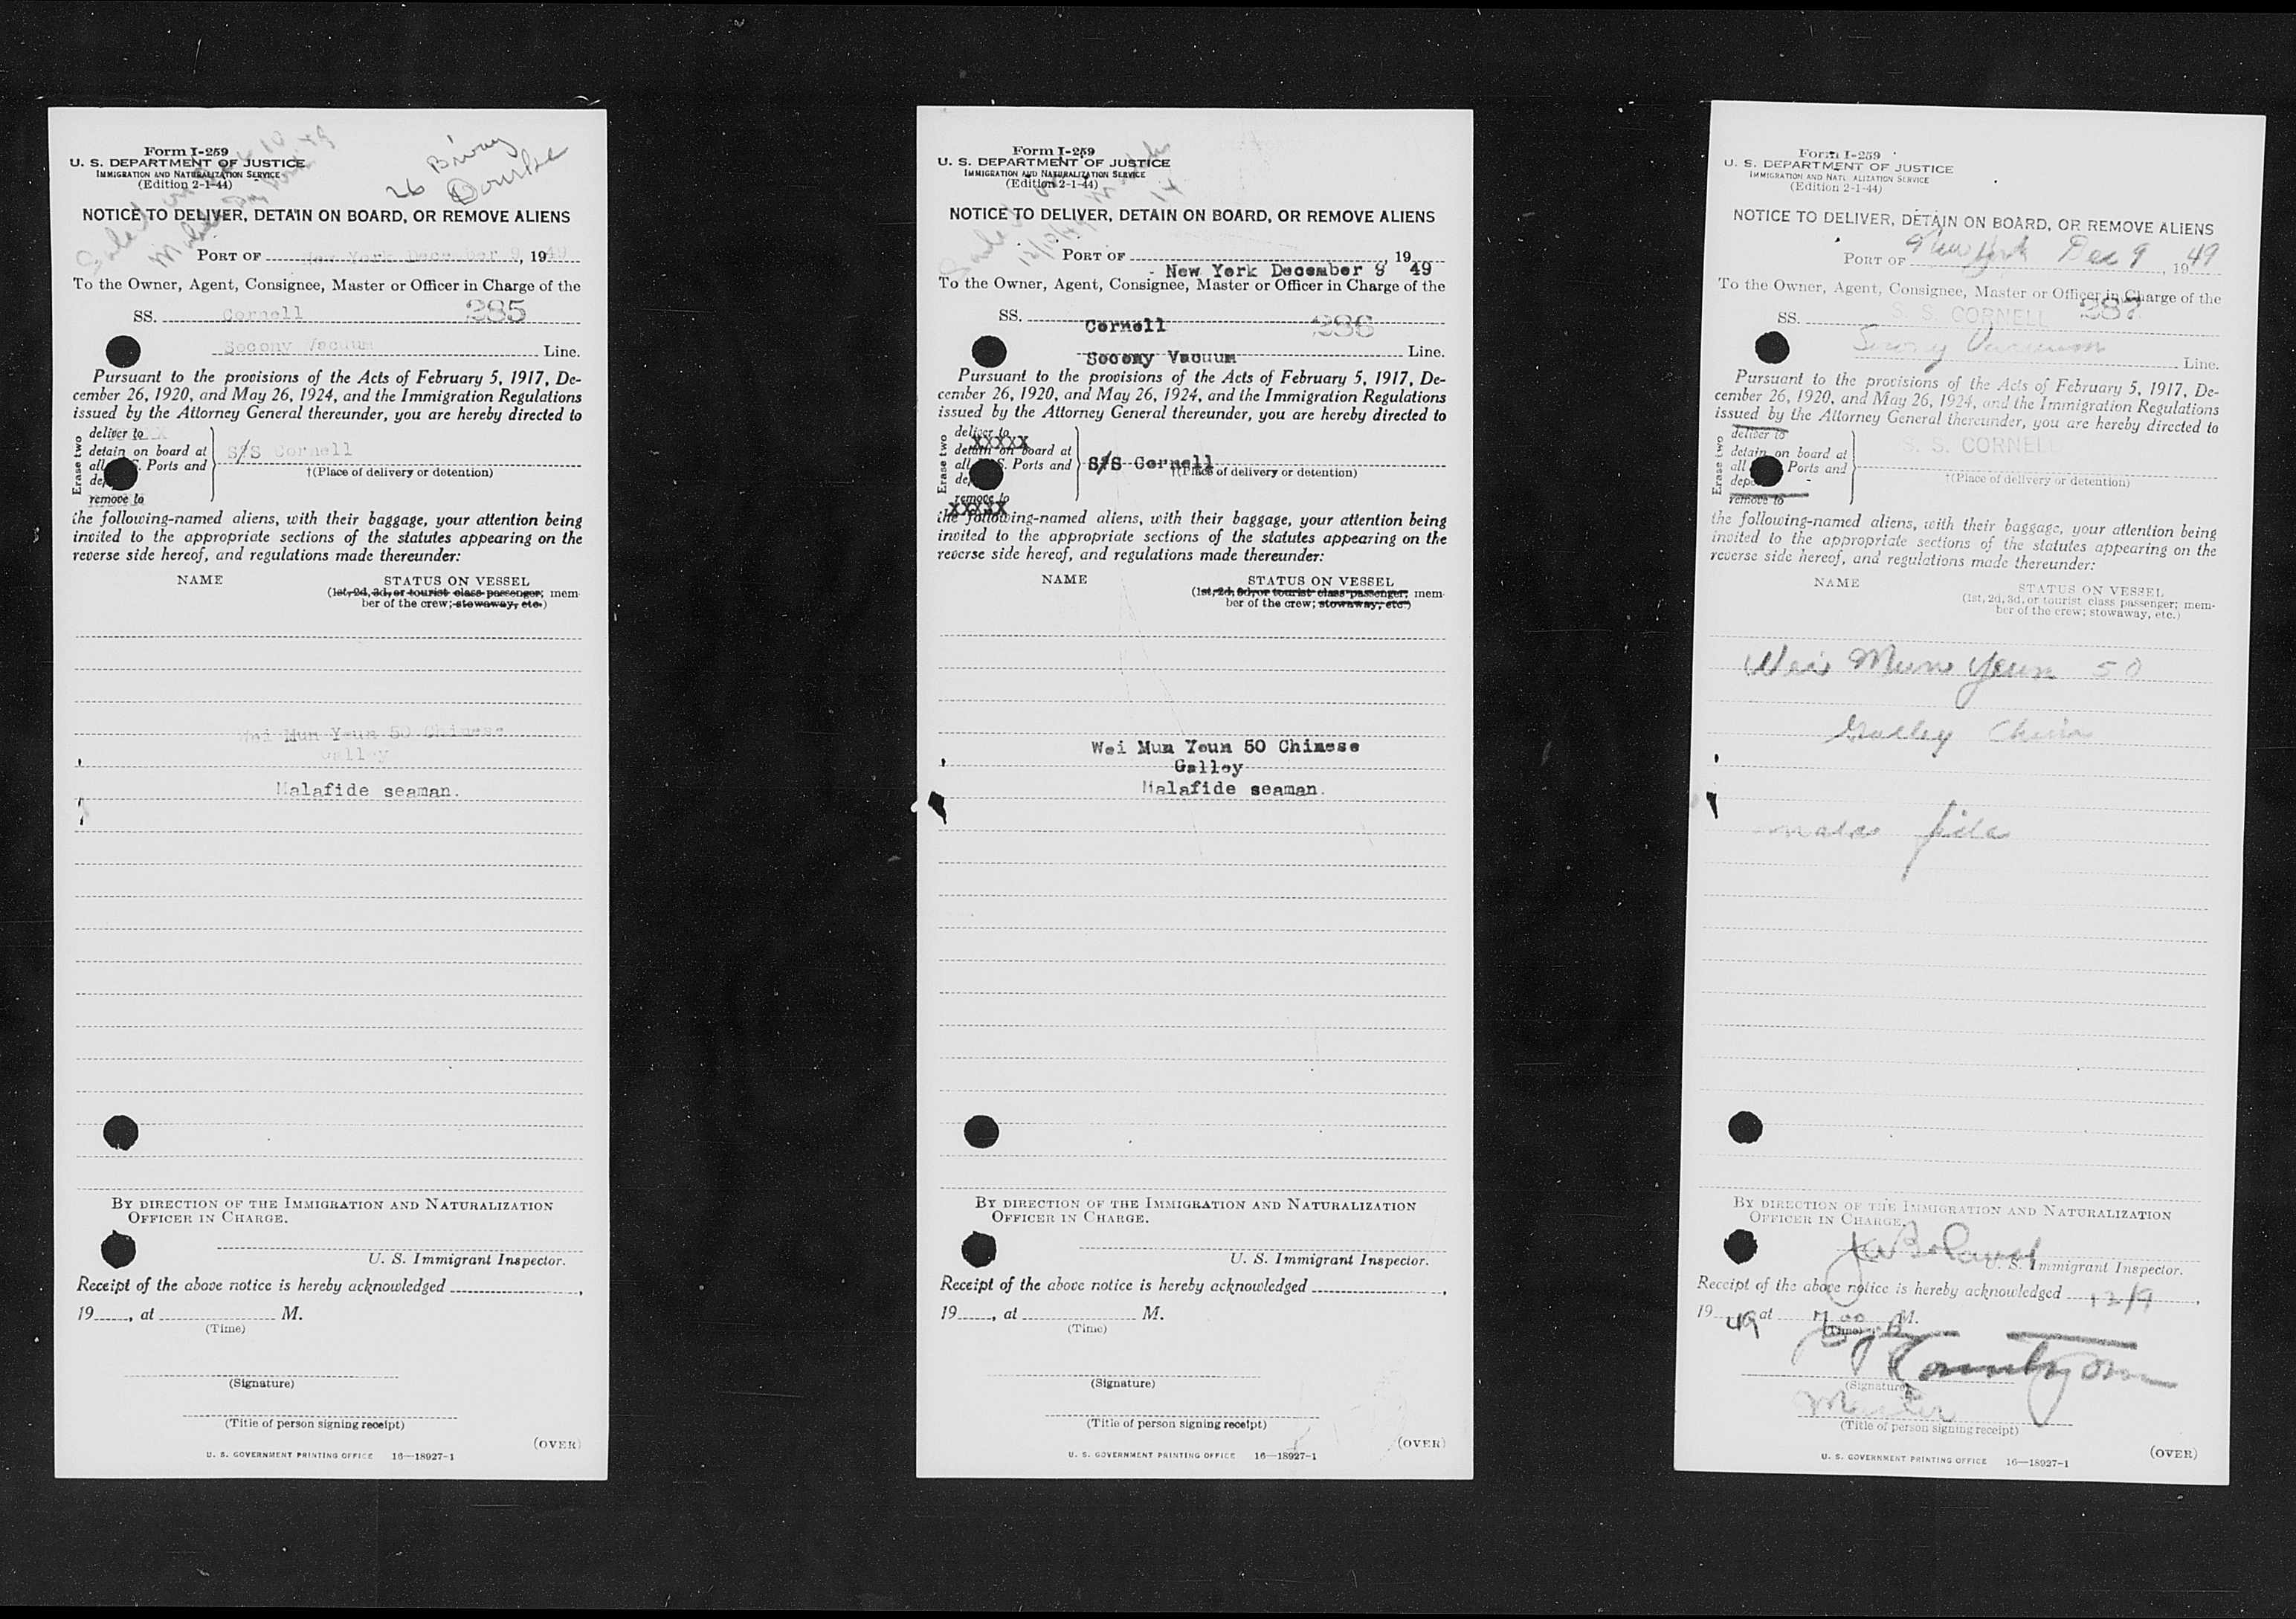 Form I-259
U. S. DEPARTMENT OF JUSTICE
IMMIGRATION AND NATURALIZATION SERVICE
(Edition 2-1-44)
26 Bway
NOTICE TO DELIVER, DETAIN ON BOARD, OR REMOVE ALIENS
PORT OF New York December 9, 1949
To the Owner, Agent, Consignee, Master or Officer in Charge of the
SS. Cornell 285
Socony Vacuum Line.
Pursuant to the provisions of the Acts of February 5, 1917, De-
cember 26, 1920, and May 26, 1924, and the Immigration Regulations
issued by the Attorney General thereunder, you are hereby directed to
Erase two
deliver to
detain on board at
all S. Ports and
remove to
S/S Cornell
†(Place of delivery or detention)
the following-named aliens, with their baggage, your attention being
invited to the appropriate sections of the statutes appearing on the
reverse side hereof, and regulations made thereunder:
NAME
STATUS ON VESSEL
(1st, 2d, 3d, or tourist class passenger; mem-
ber of the crew; stowaway, etc.)
Wei Mun Youn 50 Chinese
Galley
Malafide seaman.
BY DIRECTION OF THE IMMIGRATION AND NATURALIZATION
OFFICER IN CHARGE.
U. S. Immigrant Inspector.
Receipt of the above notice is hereby acknowledged ,
19 , at M.
(Time)
(Signature)
(Title of person signing receipt)
(OVER)
U. S. GOVERNMENT PRINTING OFFICE 16—18927-1
Form I-259
U. S. DEPARTMENT OF JUSTICE
IMMIGRATION AND NATURALIZATION SERVICE
(Edition 2-1-44)
NOTICE TO DELIVER, DETAIN ON BOARD, OR REMOVE ALIENS
PORT OF , 19
New York December 9 49
To the Owner, Agent, Consignee, Master or Officer in Charge of the
SS. Cornell 286
Socony Vacuum Line.
Pursuant to the provisions of the Acts of February 5, 1917, De-
cember 26, 1920, and May 26, 1924, and the Immigration Regulations
issued by the Attorney General thereunder, you are hereby directed to
Erase two
deliver to
XXXXX
detain on board at
all S. Ports and
remove to
XXXXX
S/S Cornell
†(Place of delivery or detention)
the following-named aliens, with their baggage, your attention being
invited to the appropriate sections of the statutes appearing on the
reverse side hereof, and regulations made thereunder:
NAME
STATUS ON VESSEL
(1st, 2d, 3d, or tourist class passenger; mem-
ber of the crew; stowaway, etc.)
Wei Mun Youn 50 Chinese
Galley
Malafide seaman.
BY DIRECTION OF THE IMMIGRATION AND NATURALIZATION
OFFICER IN CHARGE.
U. S. Immigrant Inspector.
Receipt of the above notice is hereby acknowledged ,
19 , at M.
(Time)
(Signature)
(Title of person signing receipt)
(OVER)
U. S. GOVERNMENT PRINTING OFFICE 16—18927-1
Form I-259
U. S. DEPARTMENT OF JUSTICE
IMMIGRATION AND NATURALIZATION SERVICE
(Edition 2-1-44)
NOTICE TO DELIVER, DETAIN ON BOARD, OR REMOVE ALIENS
PORT OF New York Dec 9, 1949
To the Owner, Agent, Consignee, Master or Officer in Charge of the
SS. S. S. CORNELL 287
Socony Vacuum Line.
Pursuant to the provisions of the Acts of February 5, 1917, De-
cember 26, 1920, and May 26, 1924, and the Immigration Regulations
issued by the Attorney General thereunder, you are hereby directed to
Erase two
deliver to
detain on board at
all Ports and
remove to
S. S. CORNELL
†(Place of delivery or detention)
the following-named aliens, with their baggage, your attention being
invited to the appropriate sections of the statutes appearing on the
reverse side hereof, and regulations made thereunder:
NAME
STATUS ON VESSEL
(1st, 2d, 3d, or tourist class passenger; mem-
ber of the crew; stowaway, etc.)
Wei Mun Yeun 50
Galley China
mala fide
BY DIRECTION OF THE IMMIGRATION AND NATURALIZATION
OFFICER IN CHARGE.
U. S. Immigrant Inspector.
Receipt of the above notice is hereby acknowledged 12/9,
19 49 at M.
(Time)
(Signature)
Master
(Title of person signing receipt)
(OVER)
U. S. GOVERNMENT PRINTING OFFICE 16—18927-1